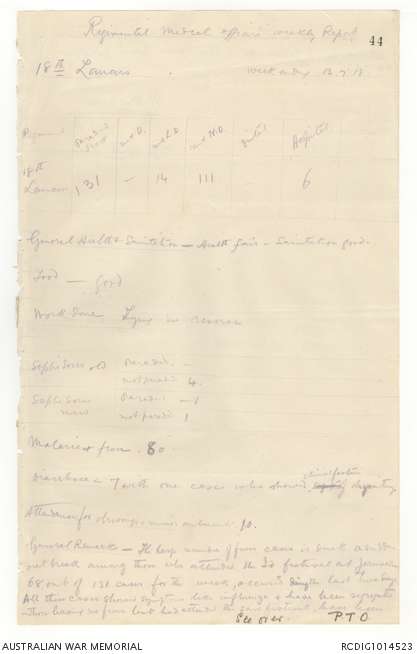 Regimental Medical Officers weekly Report
44
18th Lancers week ending 13.7.18
Regiment Paraded Sick M.D. Hospital
18th Lancers 131 – 14 111 6
General Health & Sanitation – Health fair – Sanitation good.
Food — good
Work done Lying in reserve
Septic Sores old Paraded –
not paraded 4.
Septic Sores new Paraded – 1
not paraded 1
Malaria & fever. 80
Diarrhoea – 7 with one case who showed of dysentery
Attendances for 10.
General Remarks – The large number of fever cases is due to a sudden
outbreak among those who attended the Id festival at Jerusalem
68 out of 131 cases for the week, occurred last
All these cases showed symptoms like influenza & have been segregated
those having no fever but had attended the same festival, have been
See over. P T O
AUSTRALIAN WAR MEMORIAL
RCDIG1014523